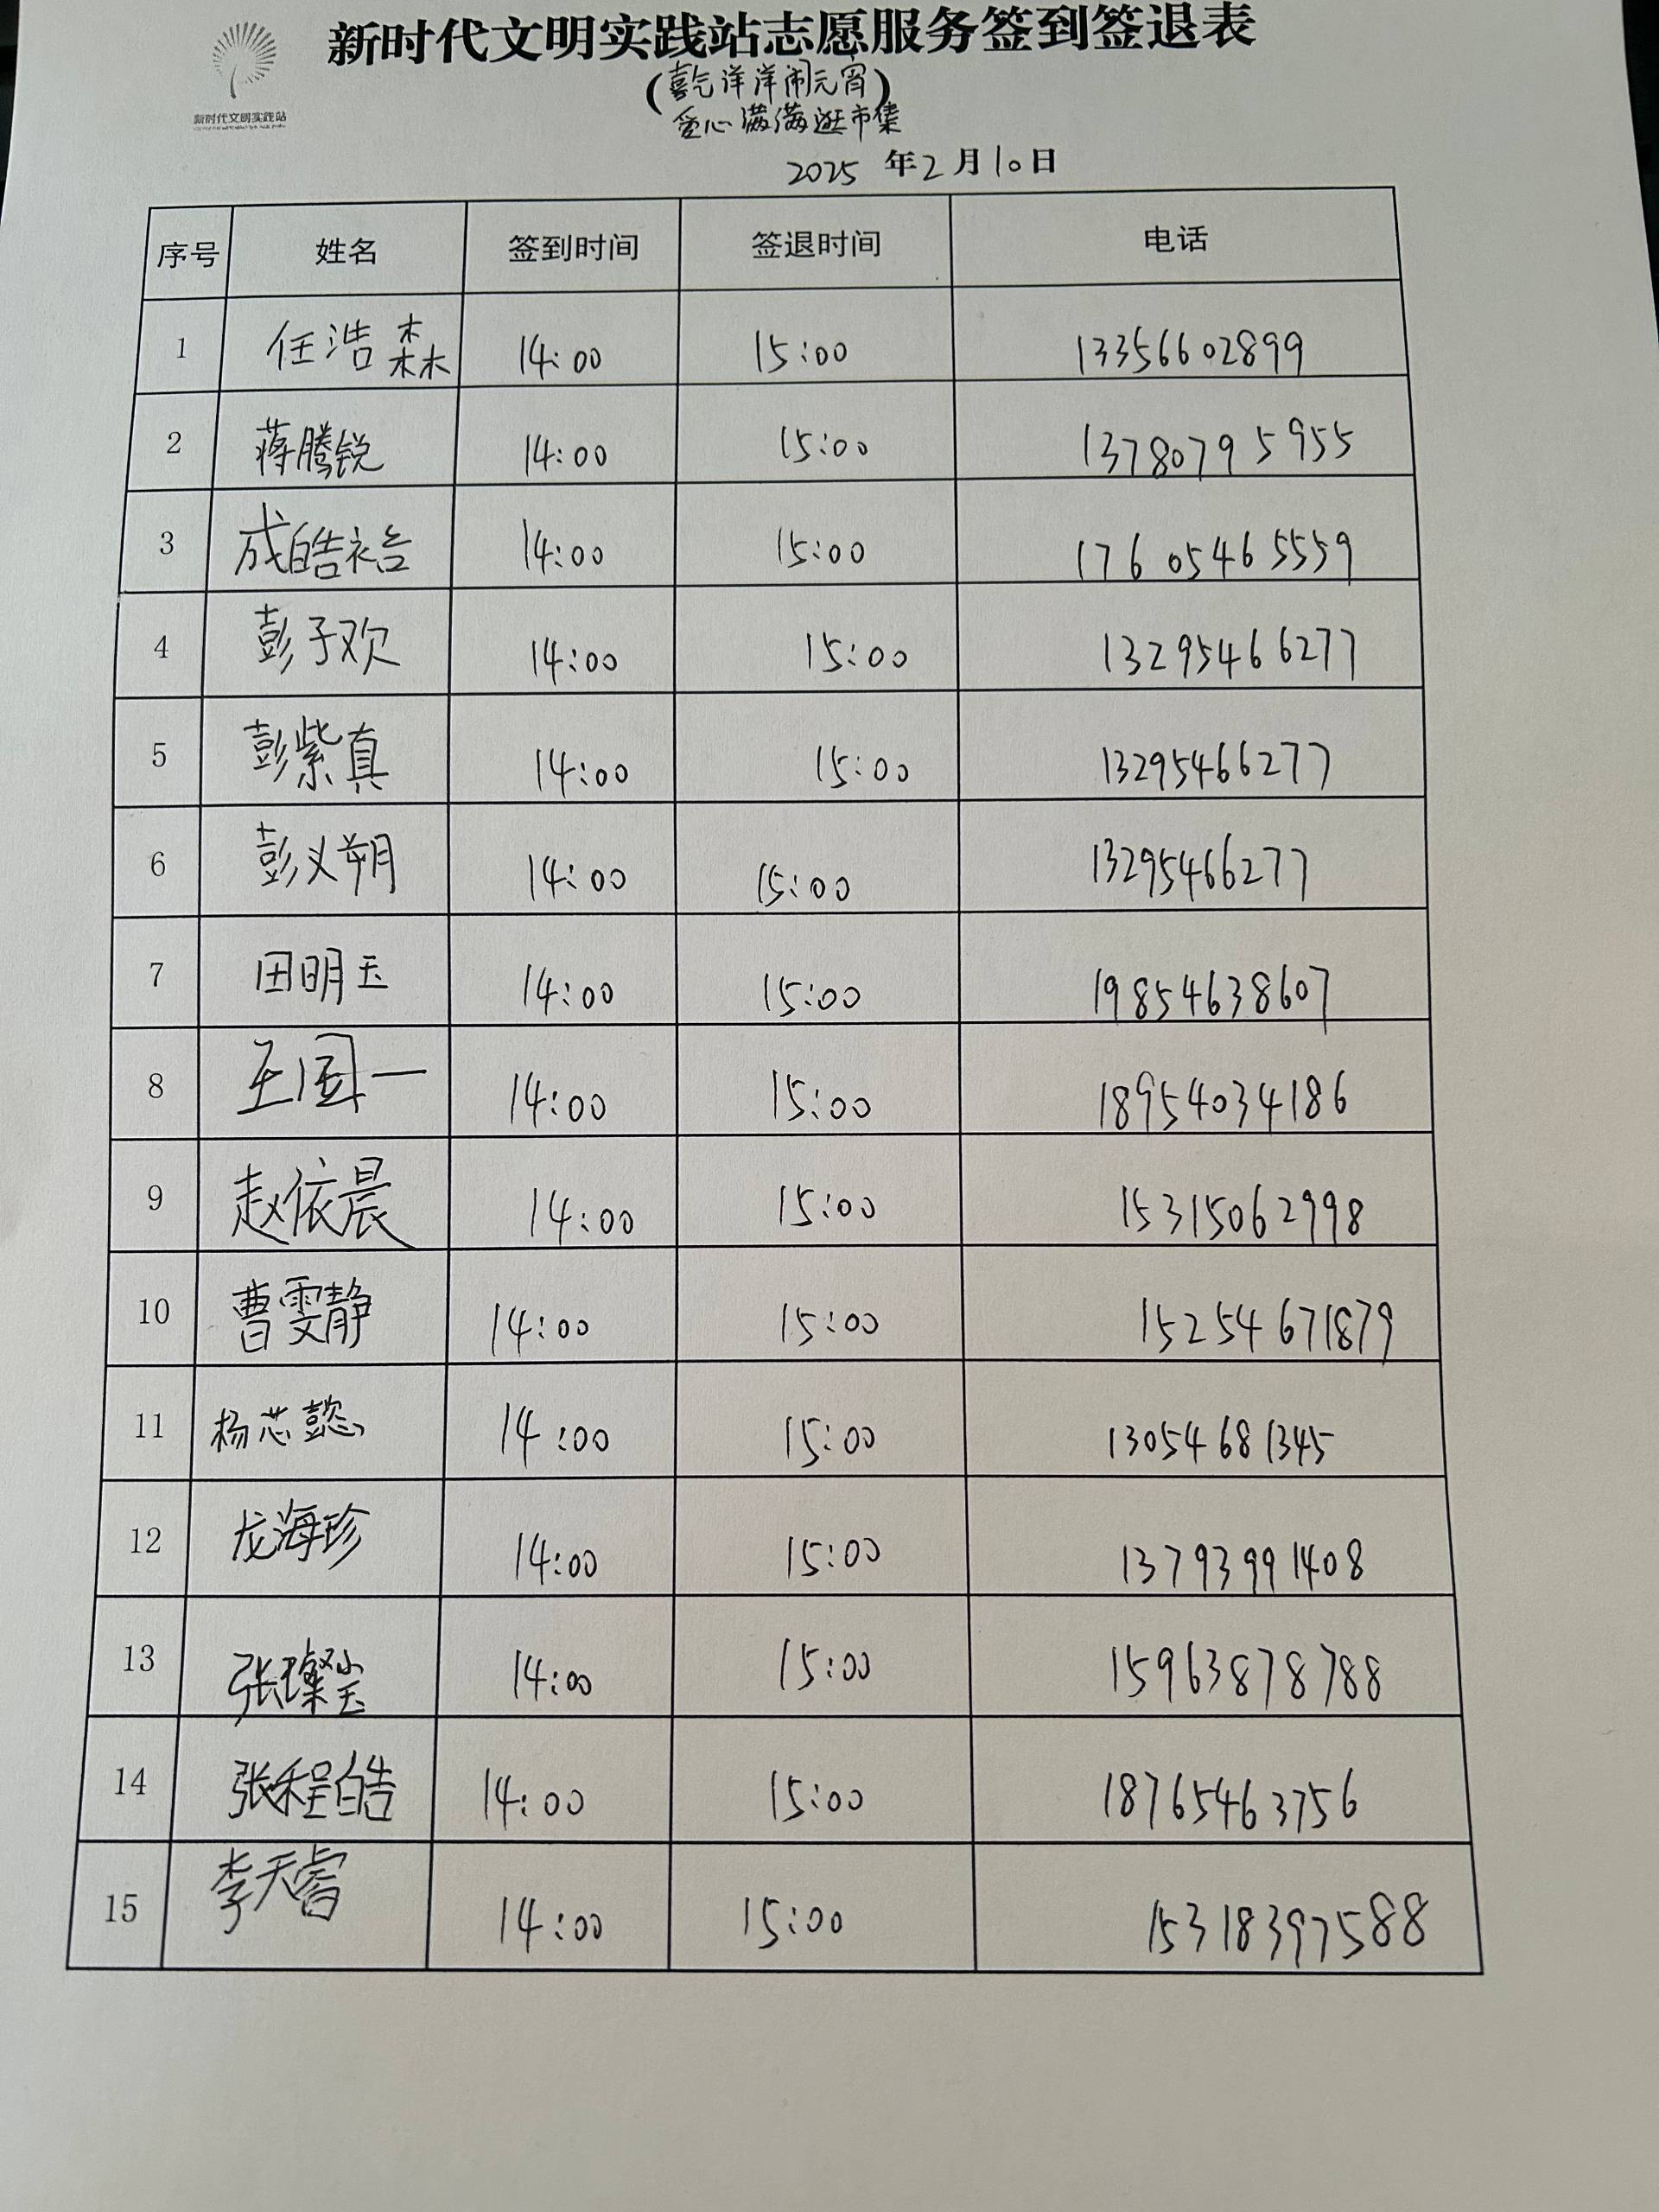 新时代文明实践站志愿服务签到签退表
(喜气洋洋闹元宵)
爱心满满逛市集
新时代文明实践站
2025 年2月10日
序号 姓名 签到时间 签退时间 电话
1 任浩森 14:00 15:00 13356602899
2 蒋腾锐 14:00 15:00 13780795955
3 成皓裕 14:00 15:00 17605465559
4 彭子欢 14:00 15:00 13295466277
5 彭紫真 14:00 15:00 13295466277
6 彭义朔 14:00 15:00 13295466277
7 田明玉 14:00 15:00 19854638607
8 王国一 14:00 15:00 18954034186
9 赵依晨 14:00 15:00 15315062998
10 曹雯静 14:00 15:00 15254671879
11 杨芯懿 14:00 15:00 13054681345
12 龙海珍 14:00 15:00 13793991408
13 张璨莹 14:00 15:00 15963878788
14 张程皓 14:00 15:00 18765463756
15 李天睿 14:00 15:00 15318397588